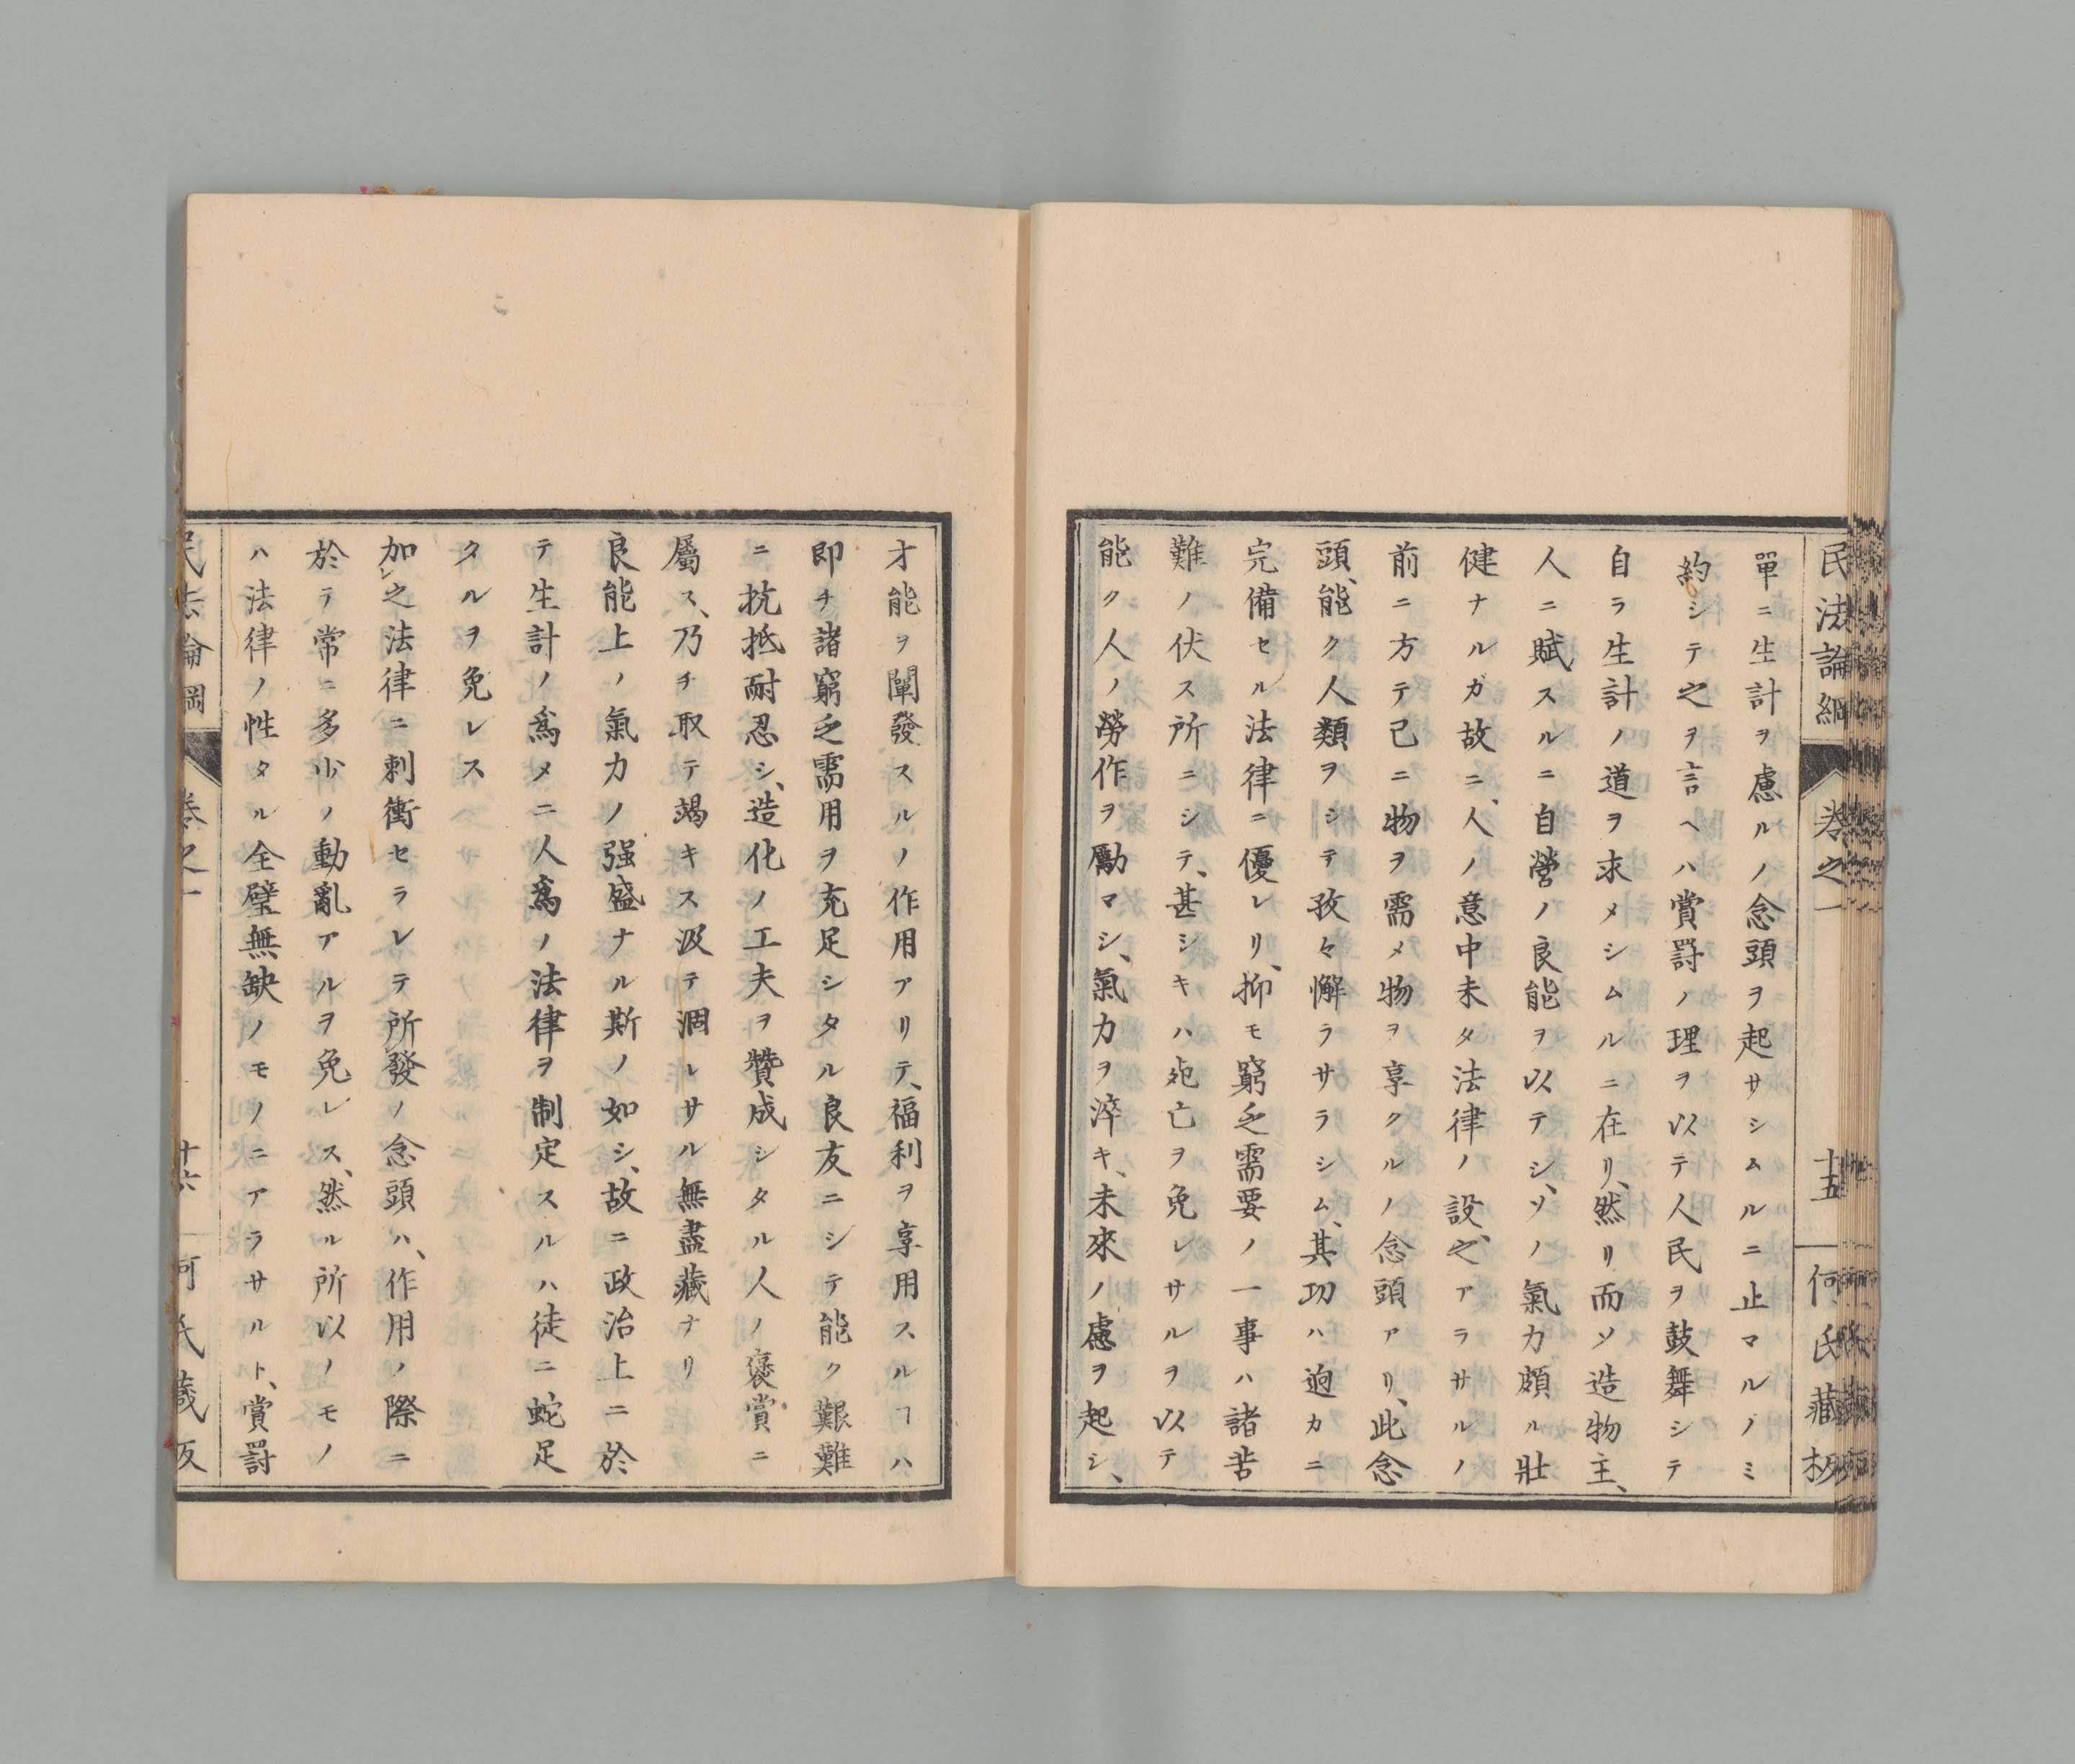 民法論綱
卷之一
十五
何氏藏板
單ニ生計ヲ慮ルノ念頭ヲ起サシムルニ止マルノミ
約シテ之ヲ言ヘハ賞罰ノ理ヲ以テ人民ヲ鼓舞シテ
自ラ生計ノ道ヲ求メシムルニ在リ、然リ而ソ造物主、
人ニ賦スルニ自營ノ良能ヲ以テシ、ソノ氣力頗ル壯
健ナルガ故ニ、人ノ意中未タ法律ノ設、之アラサルノ
前ニ方テ已ニ物ヲ需メ物ヲ享クルノ念頭アリ、此念
頭、能ク人類ヲシテ孜々懈ラサラシム、其功ハ逈カニ
完備セル法律ニ優レリ、抑モ窮乏需要ノ一事ハ諸苦
難ノ伏ス所ニシテ、甚シキハ死亡ヲ免レサルヲ以テ
能ク人ノ勞作ヲ勵マシ、氣力ヲ淬キ、未來ノ慮ヲ起シ、
才能ヲ闡發スルノ作用アリテ、福利ヲ享用スルヿハ
即チ諸窮乏需用ヲ充足シタル良友ニシテ能ク艱難
ニ抗抵耐忍シ、造化ノ工夫ヲ贊成シタル人ノ褒賞ニ
屬ス、乃チ取テ竭キス汲テ涸レサル無盡藏ナリ
良能上ノ氣力ノ强盛ナル斯ノ如シ、故ニ政治上ニ於
テ生計ノ爲メニ人爲ノ法律ヲ制定スルハ徒ニ蛇足
タルヲ免レス
加レ之法律ニ刺衝セラレテ所發ノ念頭ハ、作用ノ際ニ
於テ常ニ多少ノ動亂アルヲ免レス、然ル所以ノモノ
ハ法律ノ性タル全璧無缺ノモノニアラサルト、賞罰
民法論綱
卷之一
十六
何氏藏板